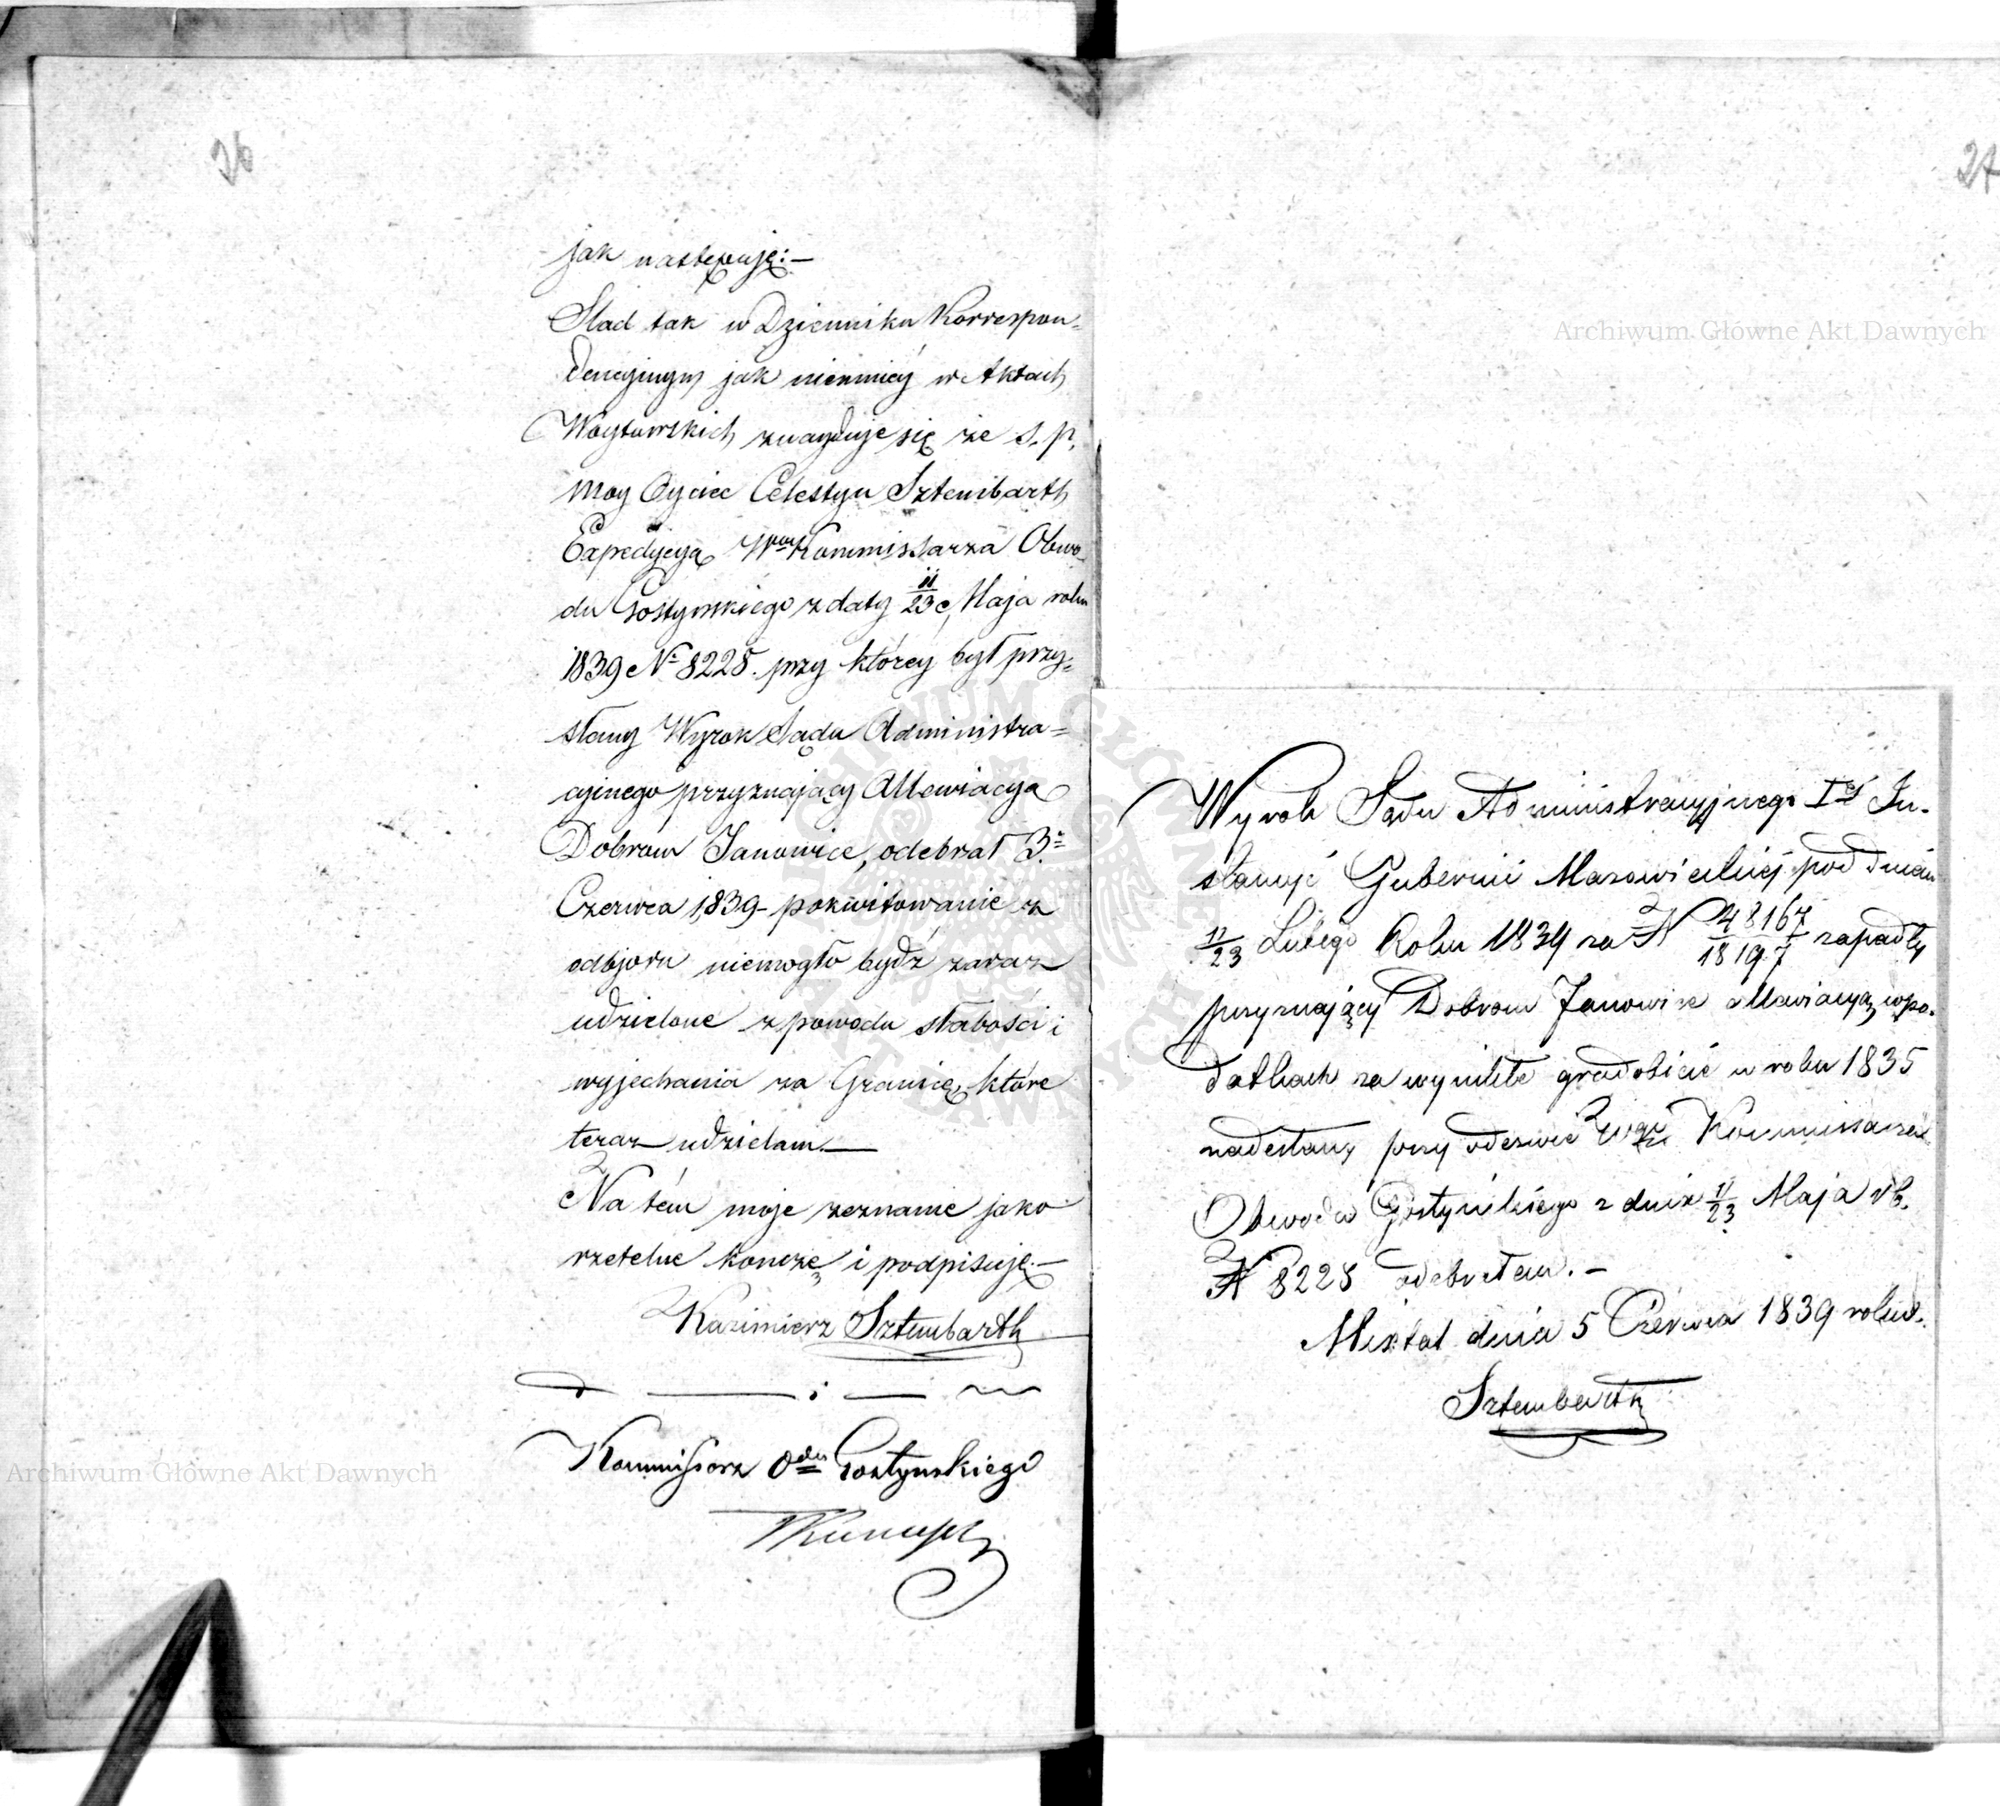 26
jak następuję:—
Slad tak w Dzienniku Korrespon-
dencyinym jak niemniéy w Aktach
Woytowskich znayduje się że s. p.
moy Oyciec Celestyn Sztembarth
Expedycyą Wgo Kommissarza Obwo-
du Gostynskiego z daty 11/23 Maja roku
1839 No 8228. przy któréy był przy-
słany Wyrok Sądu Administra-
cyinego przyznający Allewiacyą
Dobrom Janowice, odebrał 3o
Czerwca 1839 – pokwitowanie z
odbjoru niemogło bydź zaraz
udzielone z powodu słabości i
wyjechania za Granicę, które
teraz udzielam.—
Na tém moje zeznanie jako
rzetelne konczę i podpisuję.—
Kazimierz Sztembarth
Kommissarz Odu Gostynskiego
27
Wyrok Sądu Administracyjnego Iéj In-
stancyi Gubernii Mazowieckiéj pod dniem
11/23 Lutego Roku 1839 za N 48167/18197 zapadły
przyznający Dobrom Janowice allewiacyą w po-
datkach za wynikłe gradobicie w roku 1835
nadesłany przy odezwie Wgo Kommissarza
Obwodu Gostyńskiego z dnia 11/23 Maja rb.
N 8228 odebrałem.—
dnia 5 Czerwca 1839 roku.
Sztembarth
Archiwum Główne Akt Dawnych
Archiwum Główne Akt Dawnych
ARCHIWUM GŁÓWNE AKT DAWNYCH